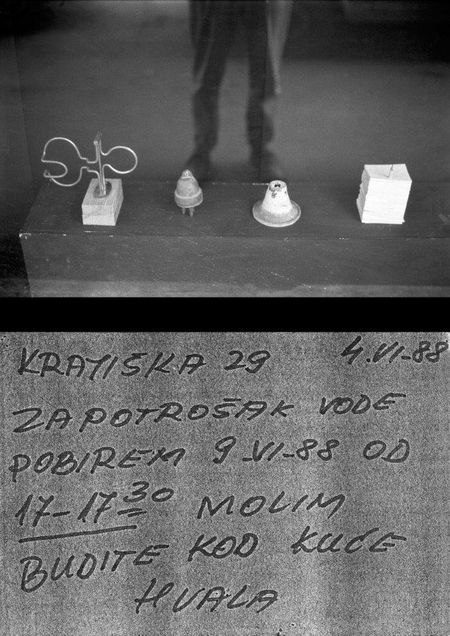 KRATIŠKA 29 4.VI-88
ZA POTROŠAK VODE
POBIREM 9-VI-88 OD
17-17³⁰ MOLIM
BUDITE KOD KUĆE
HVALA